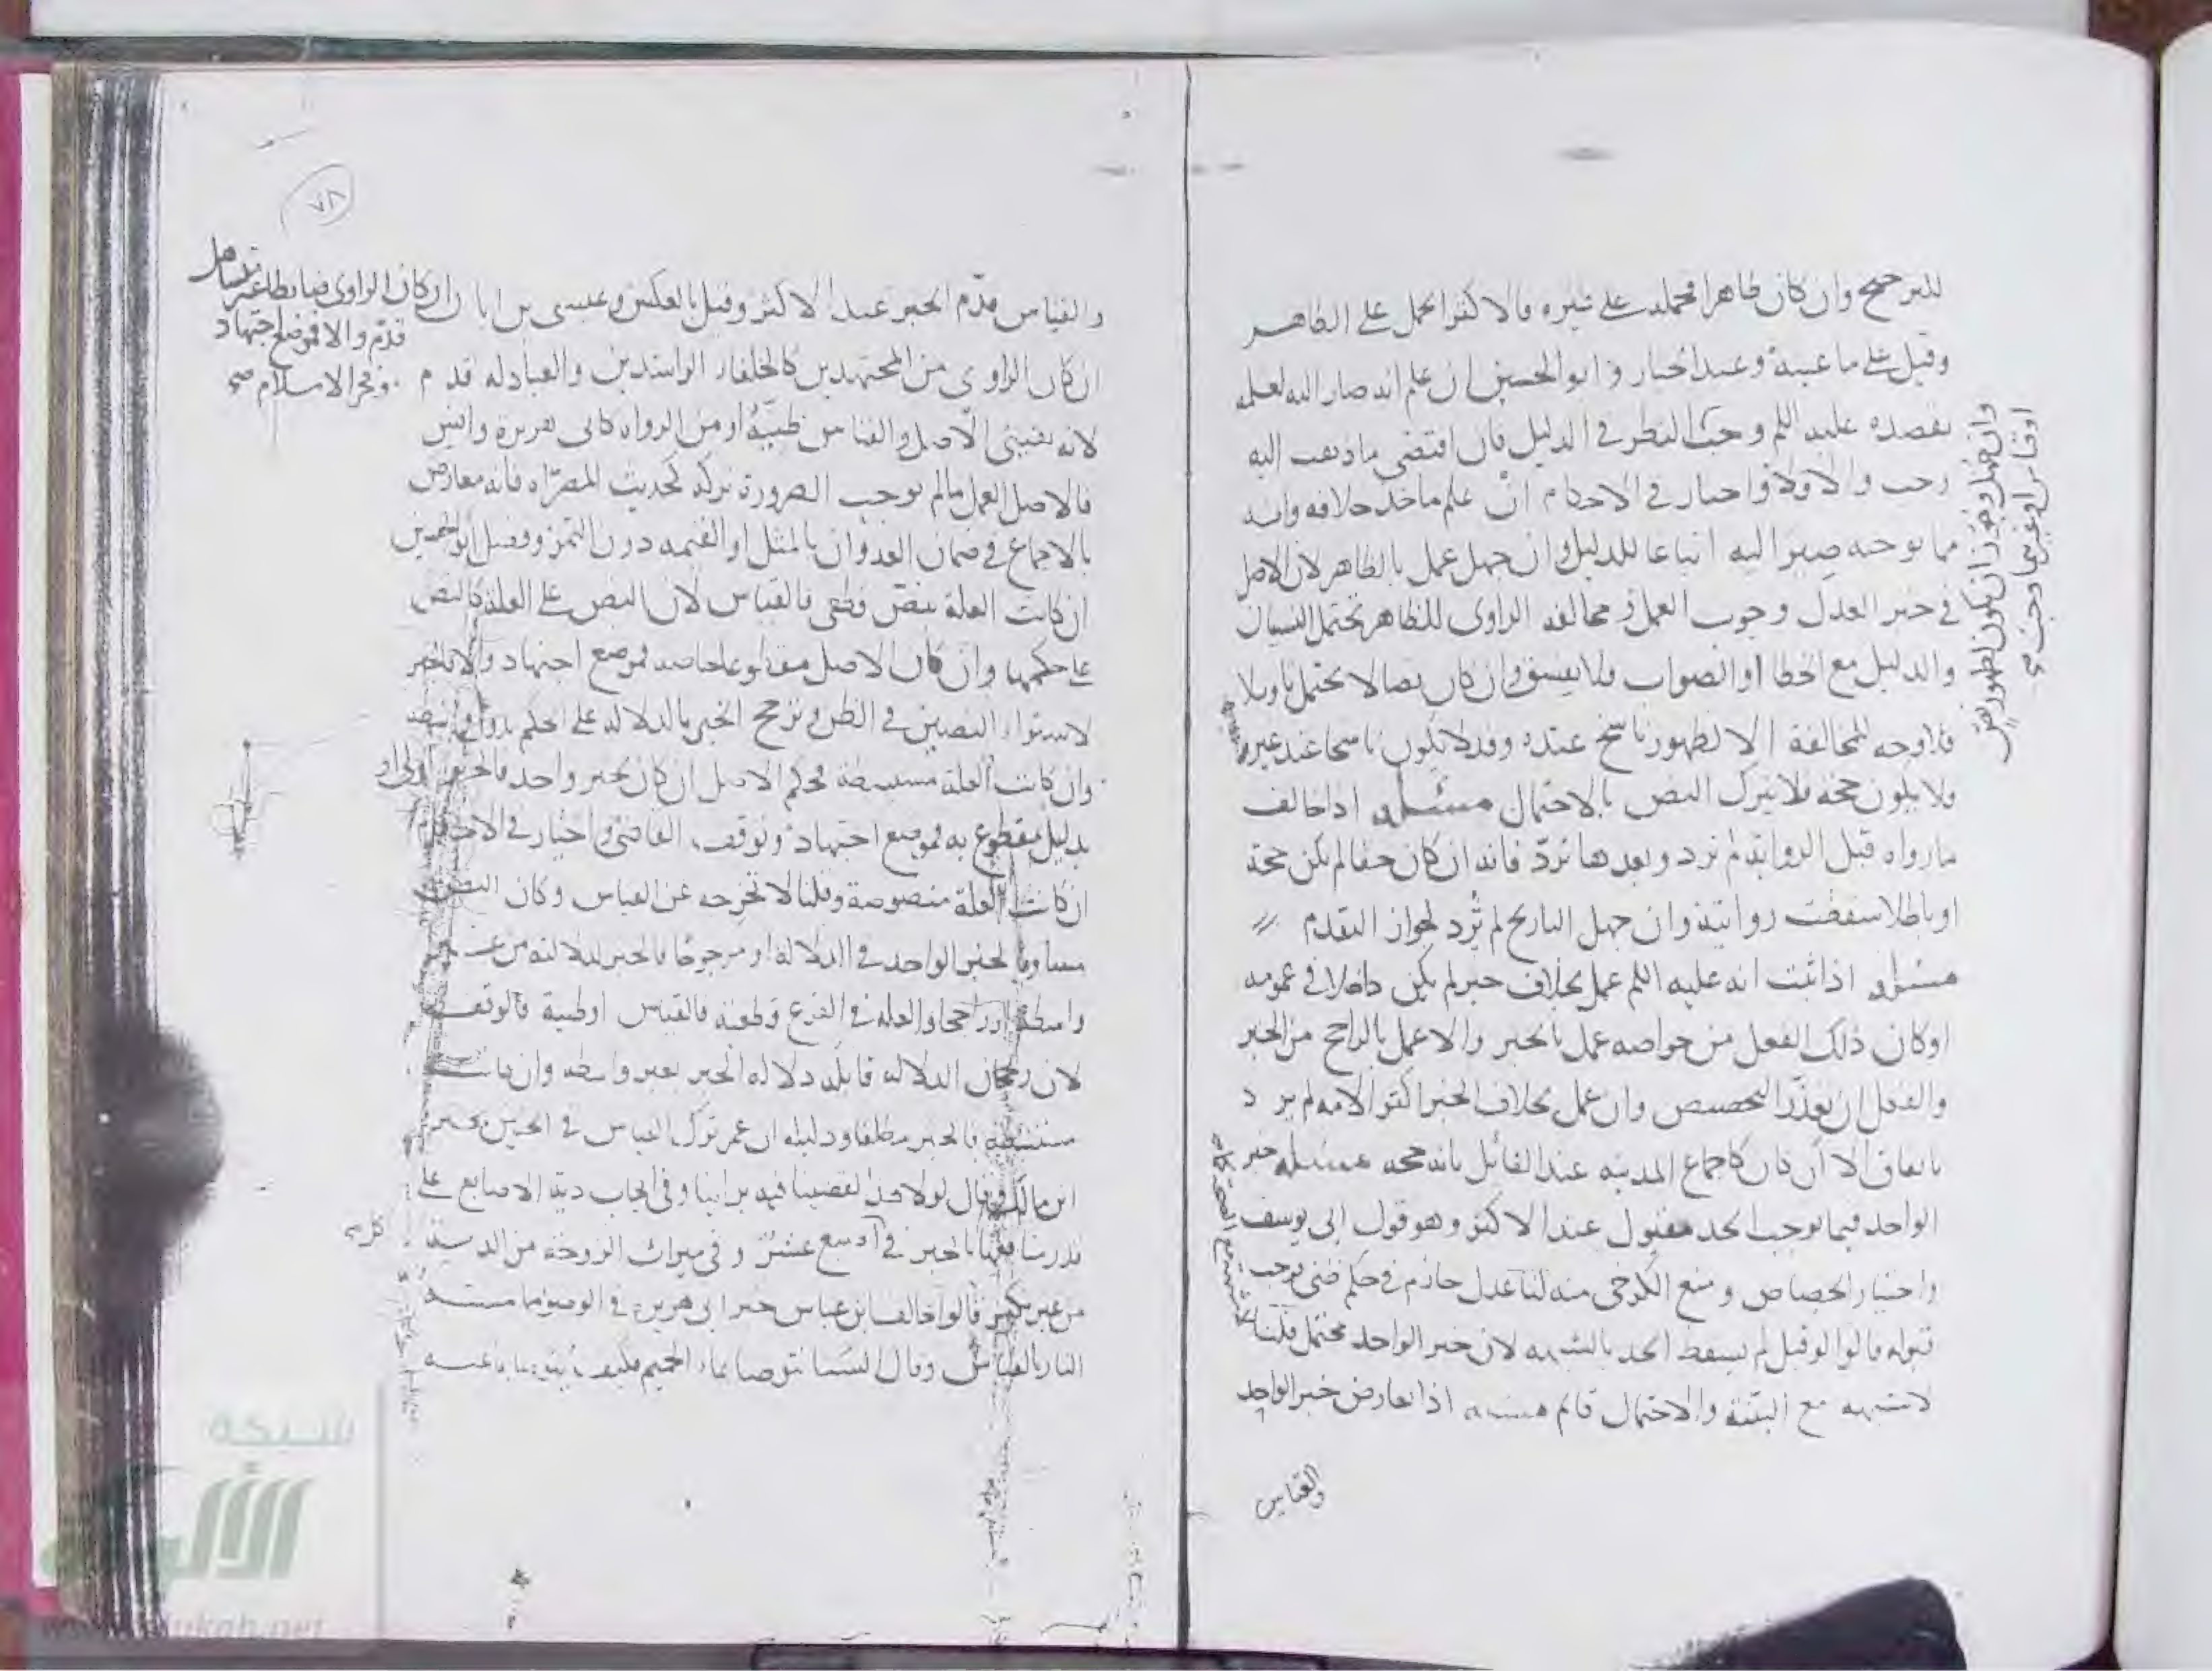 للترجيح وان كان ظاهرا فحمله على غيره فالاكثر الحمل على الظاهر
وقيل على ما عينه وعبد الجبار وابو الحسين ان علم انه صار اليه لعلمه
بقصده عليه السلم وجب النظر في الدليل فان اقتضى ما ذهب اليه
وجب والا فلا واختيار في الاحكام ان علم ماخذ خلافه وانه
مما يوجبه صير اليه اتباعا للدليل وان جهل عمل بالظاهر لان الاصل
في خبر العدل وجوب العمل ومخالفة الراوى للظاهر تحتمل النسيان
والدليل مع الخطا او الصواب فلا يفسق وان كان نصا لا يحتمل تاويلا
فلا وجه للمخالفة الا لظهور ناسخ عنده وقد لا يكون ناسخا عند غيره
فلا يكون حجة فلا يترك النص بالاحتمال مسئلة اذا خالف
ما رواه قبل الرواية لم ترد وبعدها تردّ فانه ان كان حقا لم يكن حجة
او باطلا سقطت روايته وان جهل التاريخ لم تُرد لجواز التقدم
مسئلة اذا ثبت انه عليه السلم عمل بخلاف خبر لم يكن داخلا في عمومه
او كان ذلك الفعل من خواصه عمل بالخبر والا عمل بالراجح من الخبر
والفعل ان تعذّر التخصيص وان عمل بخلاف الخبر اكثر الامه لم يرد
باتفاق الا ان كان كاجماع المدينه عند القائل بانه حجه مسئله خبر
الواحد فيما يوجب الحد مقبول عند الاكثر وهو قول ابى يوسف
واختيار الجصاص ومنع الكرخى منه لنا عدل جازم في حكم ظنى فوجب
قبوله قالوا لو قبل لم يسقط الحد بالشبهه لان خبر الواحد محتمل قلنا
لا شبهه مع البينة والاحتمال قائم مسئله اذا تعارض خبر الواحد
والقياس
٧٨
والقياس قدّم الخبر عند الاكثر وقيل بالعكس وعيسى بن ابان ان كان الراوى ضابطا غير متساهل
قدّم والا فموضع اجتهاد
وفخر الاسلام صح
ان كان الراوى من المجتهدين كالخلفاء الراشدين والعبادله قدم
لانه يقينى الاصل والقياس ظنيّة او من الرواه كابى هريرة وانس
فالاصل العمل ما لم توجب الضرورة تركه كحديث المصرّاه فانه معارض
بالاجماع في ضمان العدوان بالمثل او القيمه دون التمر وفصل ابو الحسين
ان كانت العلة بنصّ قطعى فالقياس لان النص على العلة كالنص
على حكمها وان كان الاصل مقطوعا خاصه فموضع اجتهاد والا فالخبر
لاستواء النصين في الظن وترجح الخبر بالدلاله على الحكم بدون واسطه
وان كانت العلة مستنبطة فحكم الاصل ان كان بخبر واحد فالخبر اولى او
بدليل مقطوع به فموضع اجتهاد وتوقف القاضى واختيار في الاحكام
ان كانت العلة منصوصة وقلنا لا تخرجه عن القياس وكان النص
مساويا لخبر الواحد في الدلالة او مرجوحا فالخبر لدلالته من غير
واسطة او راجحا والعله في الفرع قطعية فالقياس او ظنية فالوقف
لان رجحان الدلاله قابله دلاله الخبر بغير واسطه وان كانت
مستنبطه فالخبر مطلقا ودليله ان عمر ترك القياس في الجنين بخبر
ابن مالك وقال لولا هذا لقضينا فيه براينا وفى ايجاب دية الاصابع على
قدر منافعها بالخبر في كل اصبع عشر وفى ميراث الزوجة من الدية
من غير نكير قالوا خالف ابن عباس خبر ابى هريرة في الوضوء مما مسته
النار بالقياس وقال السنا نتوضا بماء الحميم فكيف نتوضا بما عنه